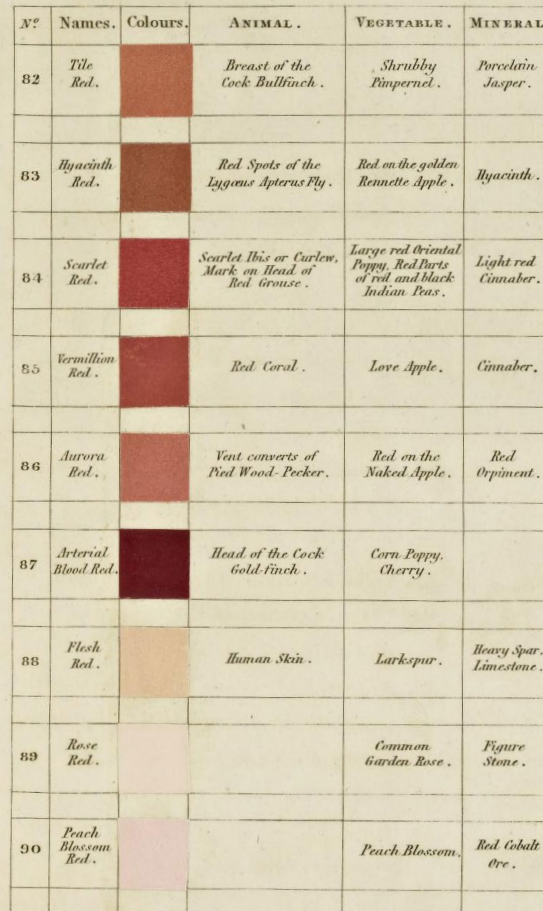 Nº Names. Colours. ANIMAL. VEGETABLE. MINERAL
82 Tile Red. Breast of the Cock Bullfinch. Shrubby Pimpernel. Porcelain Jasper.
83 Hyacinth Red. Red Spots of the Lygæus Apterus Fly. Red on the golden Rennette Apple. Hyacinth.
84 Scarlet Red. Scarlet Ibis or Curlew, Mark on Head of Red Grouse. Large red Oriental Poppy, Red Parts of red and black Indian Peas. Light red Cinnaber.
85 Vermillion Red. Red Coral. Love Apple. Cinnaber.
86 Aurora Red. Vent converts of Pied Wood-Pecker. Red on the Naked Apple. Red Orpiment.
87 Arterial Blood Red. Head of the Cock Gold-finch. Corn Poppy, Cherry.
88 Flesh Red. Human Skin. Larkspur. Heavy Spar. Limestone.
89 Rose Red. Common Garden Rose. Figure Stone.
90 Peach Blossom Red. Peach Blossom. Red Cobalt Ore.